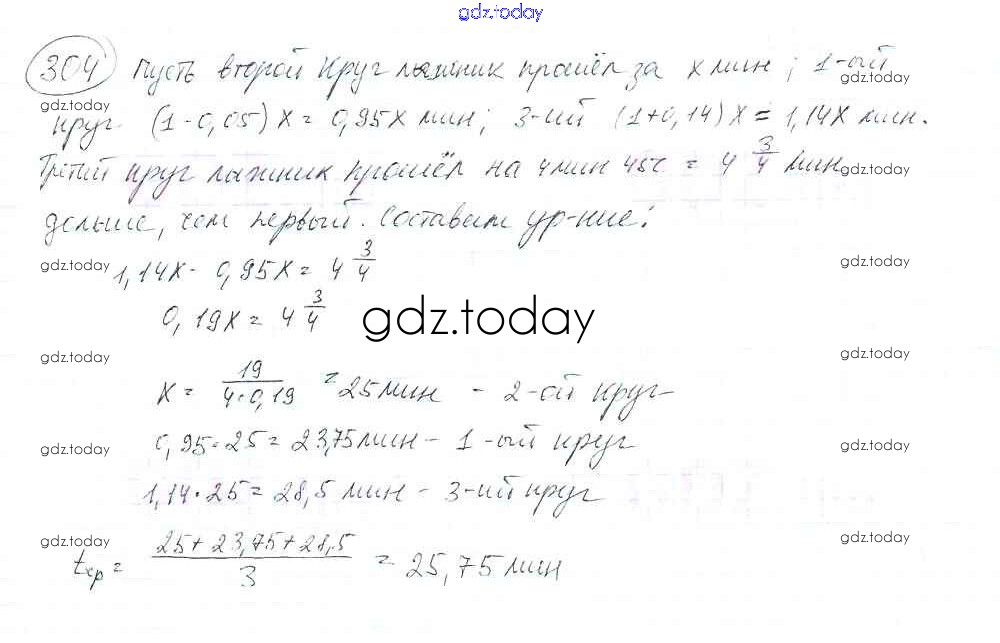 gdz.today
304 Пусть второй круг лыжник прошёл за x мин; 1-ый
gdz.today gdz.today
круг (1-0,05)x = 0,95x мин; 3-ий (1+0,14)x = 1,14x мин.
Третий круг лыжник прошёл на 4 мин 45с = 4 3/4 мин
gdz.today gdz.today
дольше, чем первый. Составим ур-ние:
gdz.today gdz.today
1,14x - 0,95x = 4 3/4
0,19x = 4 3/4
gdz.today
gdz.today gdz.today
x = 19/(4·0,19) = 25 мин - 2-ой круг
0,95·25 = 23,75 мин - 1-ый круг
gdz.today gdz.today
1,14·25 = 28,5 мин - 3-ий круг
gdz.today gdz.today
tср = (25+23,75+28,5)/3 = 25,75 мин